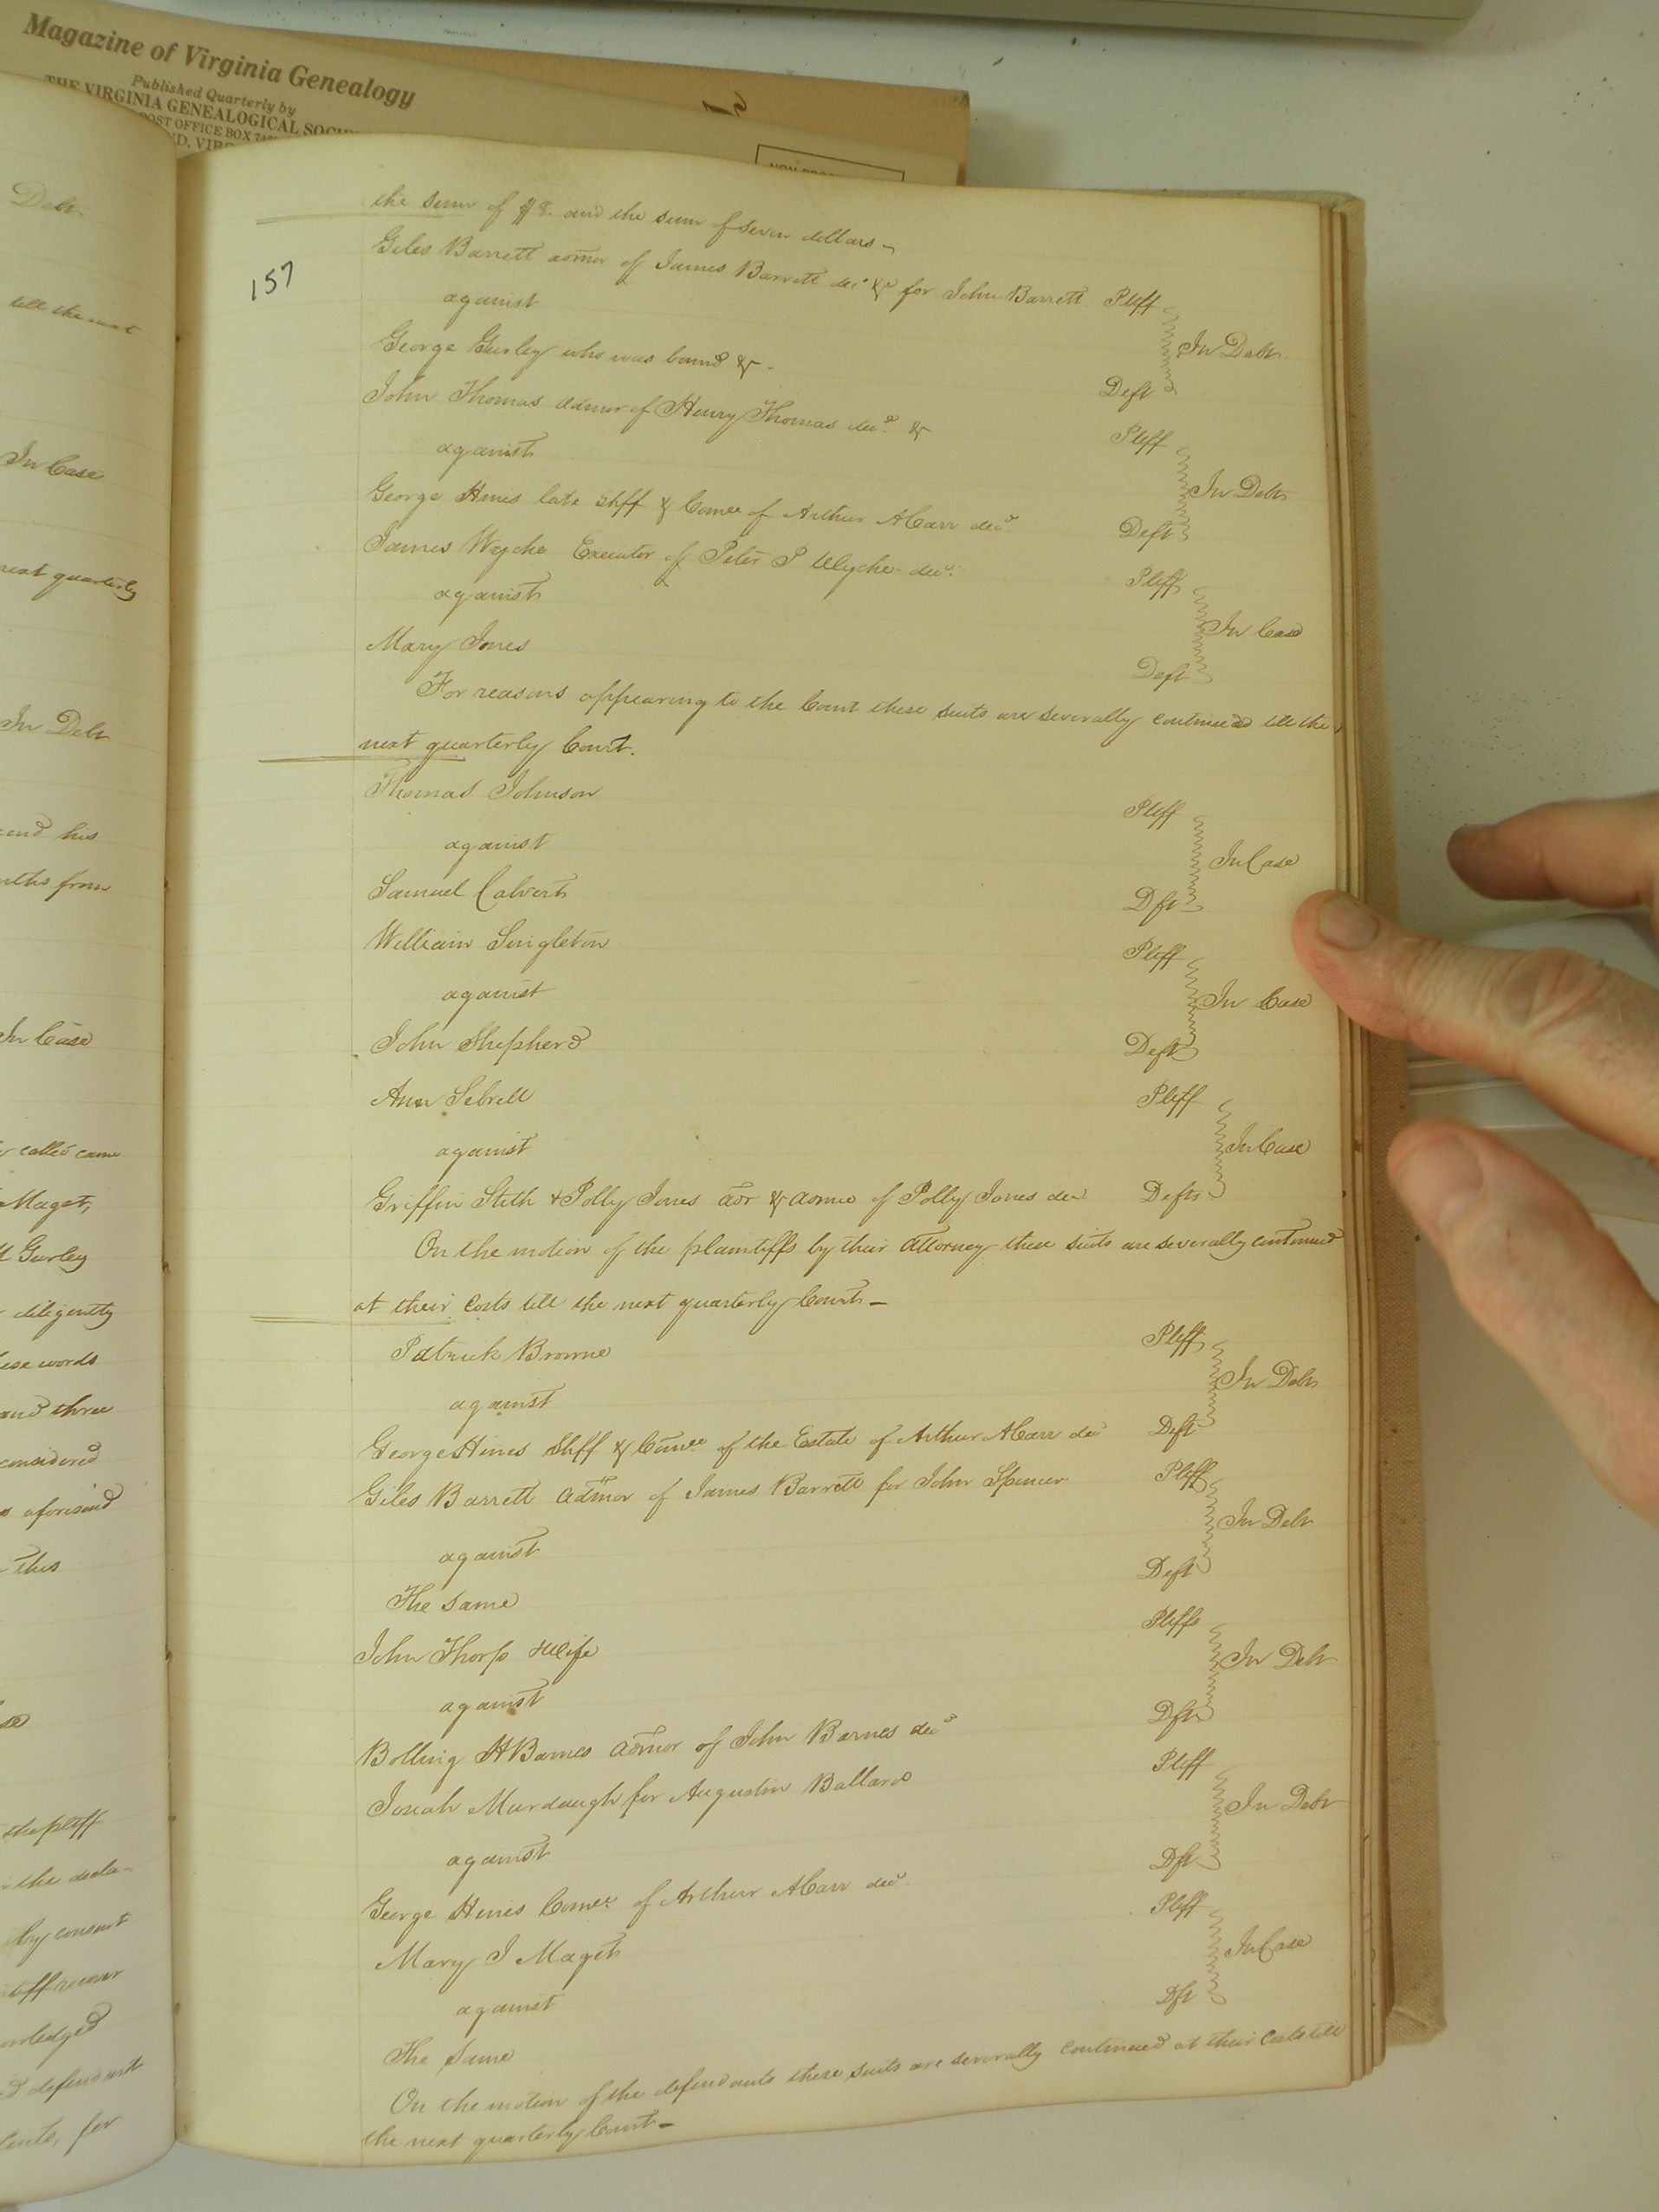 Magazine of Virginia Genealogy
Published Quarterly by
THE VIRGINIA GENEALOGICAL
POST OFFICE BOX
Debt
till the next
In Case
next quarterly
In Debt
and his
from
In Case
called came
Maget,
Gurley
diligently
words
and three
considered
aforesaid
This
the pltff
the decla-
by consent
recover
defendant
for
157
the sum of $8. and the sum of seven dollars -
Giles Barrett admor of James Barrett decd &c for John Barrett Pltff
against
In Debt
George Gurley who was bound &c.
Deft
John Thomas admor of Henry Thomas decd &c
Pltff
against
In Debt
George Hines late Shff & Comee of Arthur A Carr decd
Deft
James Wyche Executor of Peter P Wyche decd.
Pltff
against
In Case
Mary Jones
Deft
For reasons appearing to the Court these suits are severally continued till the
next quarterly Court.
Thomas Johnson
Pltff
against
In Case
Samuel Calvert
Dft
William Singleton
Pltff
against
In Case
John Shepherd
Deft
Ann Sebrell
Pltff
against
In Case
Griffin Stith & Polly Jones &  of Polly Jones decd Defts
On the motion of the plaintiffs by their attorney these suits are severally continued
at their costs till the next quarterly Court -
Patrick Browne
Pltff
against
In Debt
George Hines Shff & Comee of the Estate of Arthur A Carr decd Deft
Giles Barrett admor of James Barrett for John Spencer Pltff
against
In Debt
The same
Deft
John Thorp & Wife
Pltffs
against
In Debt
Bolling H Barnes admor of John Barnes decd
Dft
Josiah Murdaugh for Augustin Ballard
Pltff
against
In Debt
George Hines Comee of Arthur A Carr decd.
Dft
Mary J Maget
Pltff
against
In Case
The Same
Dft
On the motion of the defendants these suits are severally continued at their Costs till
the next quarterly Court -